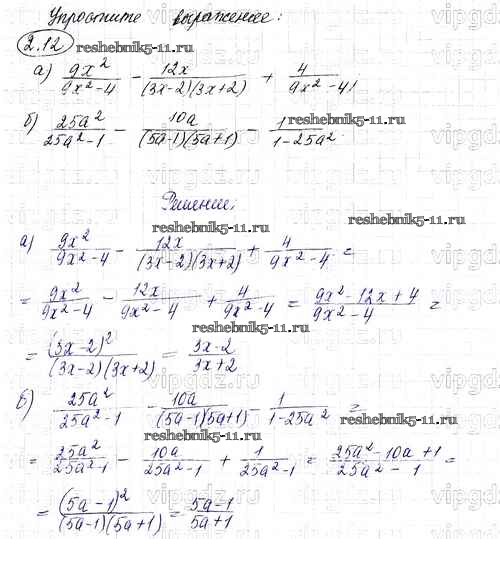 Упростите выражение:
2.12 reshebnik5-11.ru
а) 9x²/(9x²-4) - 12x/((3x-2)(3x+2)) + 4/(9x²-4)
reshebnik5-11.ru
б) 25a²/(25a²-1) - 10a/((5a-1)(5a+1)) - 1/(1-25a²)
Решение:
reshebnik5-11.ru
reshebnik5-11.ru
а) 9x²/(9x²-4) - 12x/((3x-2)(3x+2)) + 4/(9x²-4) =
= 9x²/(9x²-4) - 12x/(9x²-4) + 4/(9x²-4) = (9x²-12x+4)/(9x²-4) =
reshebnik5-11.ru
= (3x-2)²/((3x-2)(3x+2)) = (3x-2)/(3x+2)
б) 25a²/(25a²-1) - 10a/((5a-1)(5a+1)) - 1/(1-25a²) =
reshebnik5-11.ru
reshebnik5-11.ru
= 25a²/(25a²-1) - 10a/(25a²-1) + 1/(25a²-1) = (25a²-10a+1)/(25a²-1) =
= (5a-1)²/((5a-1)(5a+1)) = (5a-1)/(5a+1)
vipgdz.ru